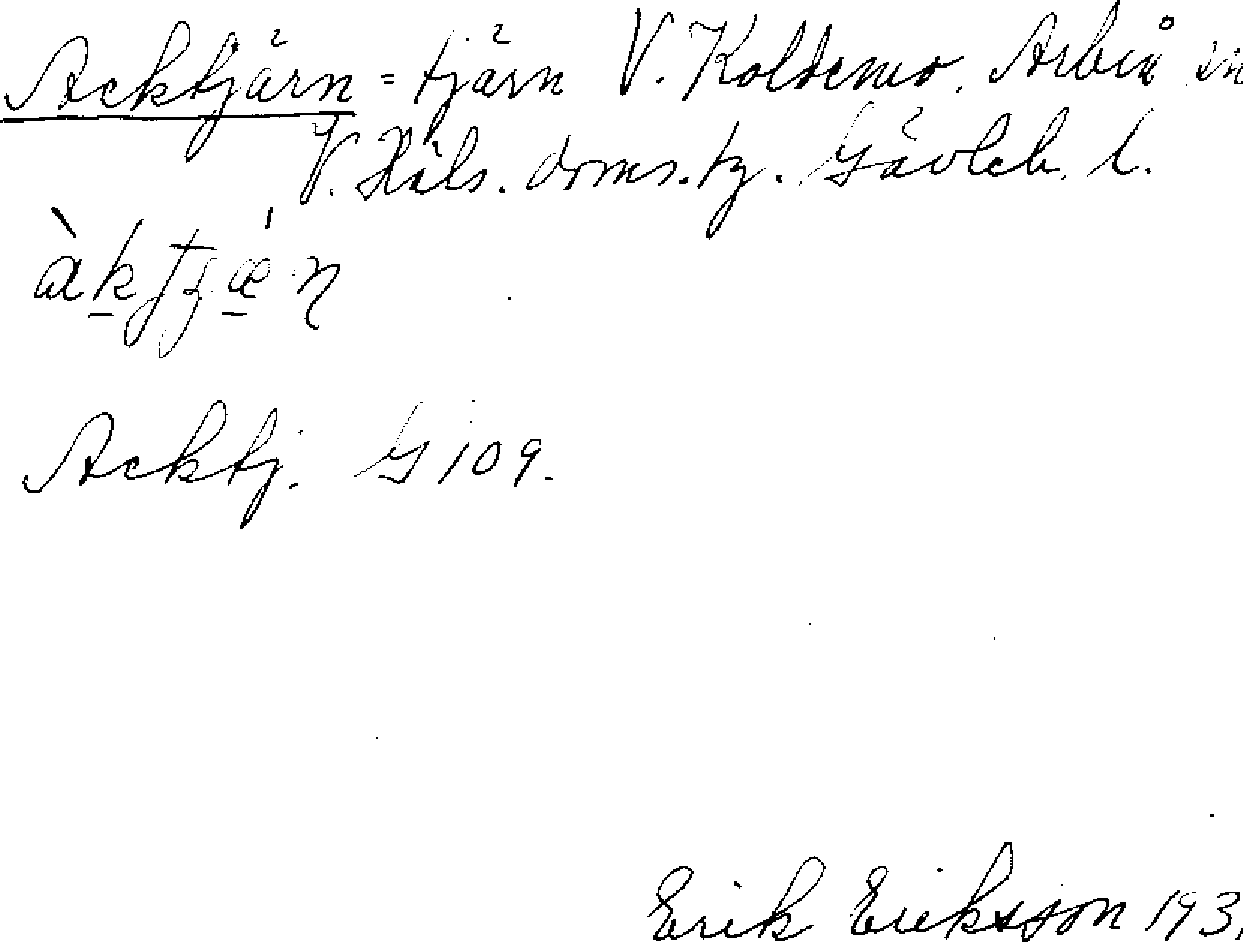 Acktjärn = tjärn V. Koldemo. Arbrå sn
V. Häls. doms. tg. Gävleb. l.
Acktj. G 109.
Erik Eriksson 193